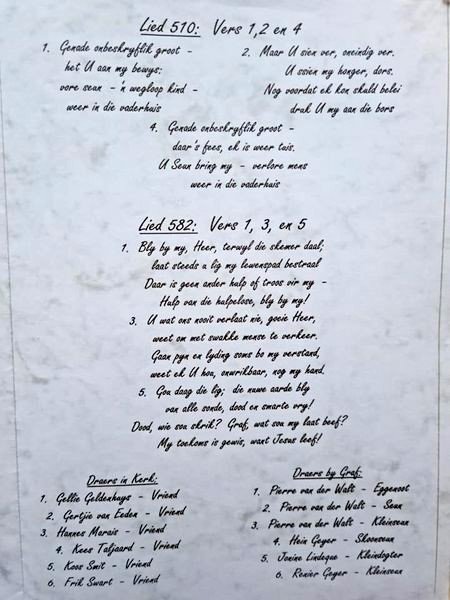 Lied 510: Vers 1,2 en 4
1. Genade onbeskryflik groot -
het U aan my bewys:
vore seun - 'n wegloop kind -
weer in die vaderhuis
2. Maar U sien ver, oneindig ver.
U ssien my honger, dors.
Nog voordat ek kon skuld belei
druk U my aan die bors
4. Genade onbeskryflik groot -
daar's fees, ek is weer tuis.
U Seun bring my - verlore mens
weer in die vaderhuis
Lied 582: Vers 1, 3, en 5
1. Bly by my, Heer, terwyl die skemer daal;
laat steeds u lig my lewenspad bestraal
Daar is geen ander hulp of troos vir my -
Hulp van die hulpelose, bly by my!
3. U wat ons nooit verlaat nie, goeie Heer,
weet om met swakke mense te verkeer.
Gaan pyn en lyding soms bo my verstand,
weet ek U hou, onwrikbaar, nog my hand.
5. Gou daag die lig; die nuwe aarde bly
van alle sonde, dood en smarte vry!
Dood, wie sou skrik? Graf, wat sou my laat beef?
My toekoms is gewis, want Jesus leef!
Draers in Kerk:
1. Gellie Geldenhuys - Vriend
2. Gertjie van Eeden - Vriend
3. Hannes Marais - Vriend
4. Kees Taljaard - Vriend
5. Koos Smit - Vriend
6. Frik Swart - Vriend
Draers by Graf:
1. Pierre van der Walt - Eggenoot
2. Pierre van der Walt - Seun
3. Pierre van der Walt - Kleinseun
4. Hein Geyer - Skoonseun
5. Jonine Lindeque - Kleindogter
6. Renier Geyer - Kleinseun